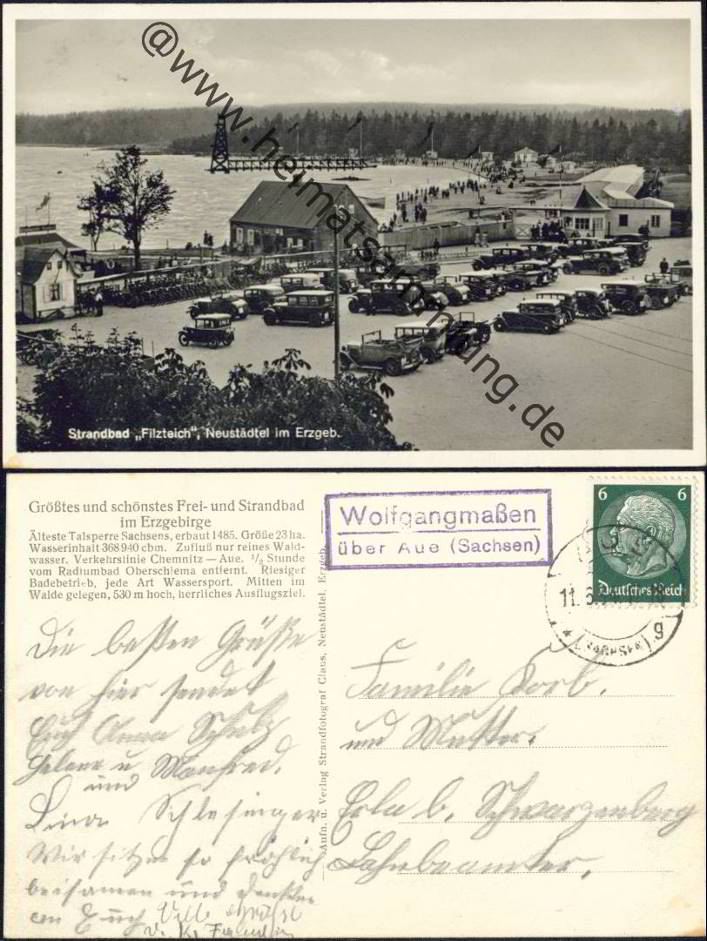 @www.heimatsammlung.de
Strandbad „Filzteich“, Neustädtel im Erzgeb.
Größtes und schönstes Frei- und Strandbad
im Erzgebirge
Älteste Talsperre Sachsens, erbaut 1485. Größe 23 ha.
Wasserinhalt 368940 cbm. Zufluß nur reines Wald-
wasser. Verkehrslinie Chemnitz — Aue. ½ Stunde
vom Radiumbad Oberschlema entfernt. Riesiger
Badebetrieb, jede Art Wassersport. Mitten im
Walde gelegen, 530 m hoch, herrliches Ausflugsziel.
Die besten Grüße
von hier sendet
Euch Anna Schulz
Helene u Manfred.
und
Lina Schlesinger
Wir sitzen so fröhlich
beisamen und denken
an Euch
Aufn. u. Verlag Strandfotograf Claus, Neustädtel, Erzgeb.
Wolfgangmaßen
über Aue (Sachsen)
6 6
Deutsches Reich
11.6
(SACHSEN) g
Familie Korb.
und Mutter.
Erla b. Schwarzenberg
Bahnbeamter.